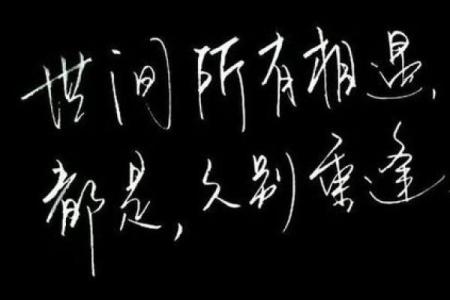 世间所有相遇，
都是，久别重逢